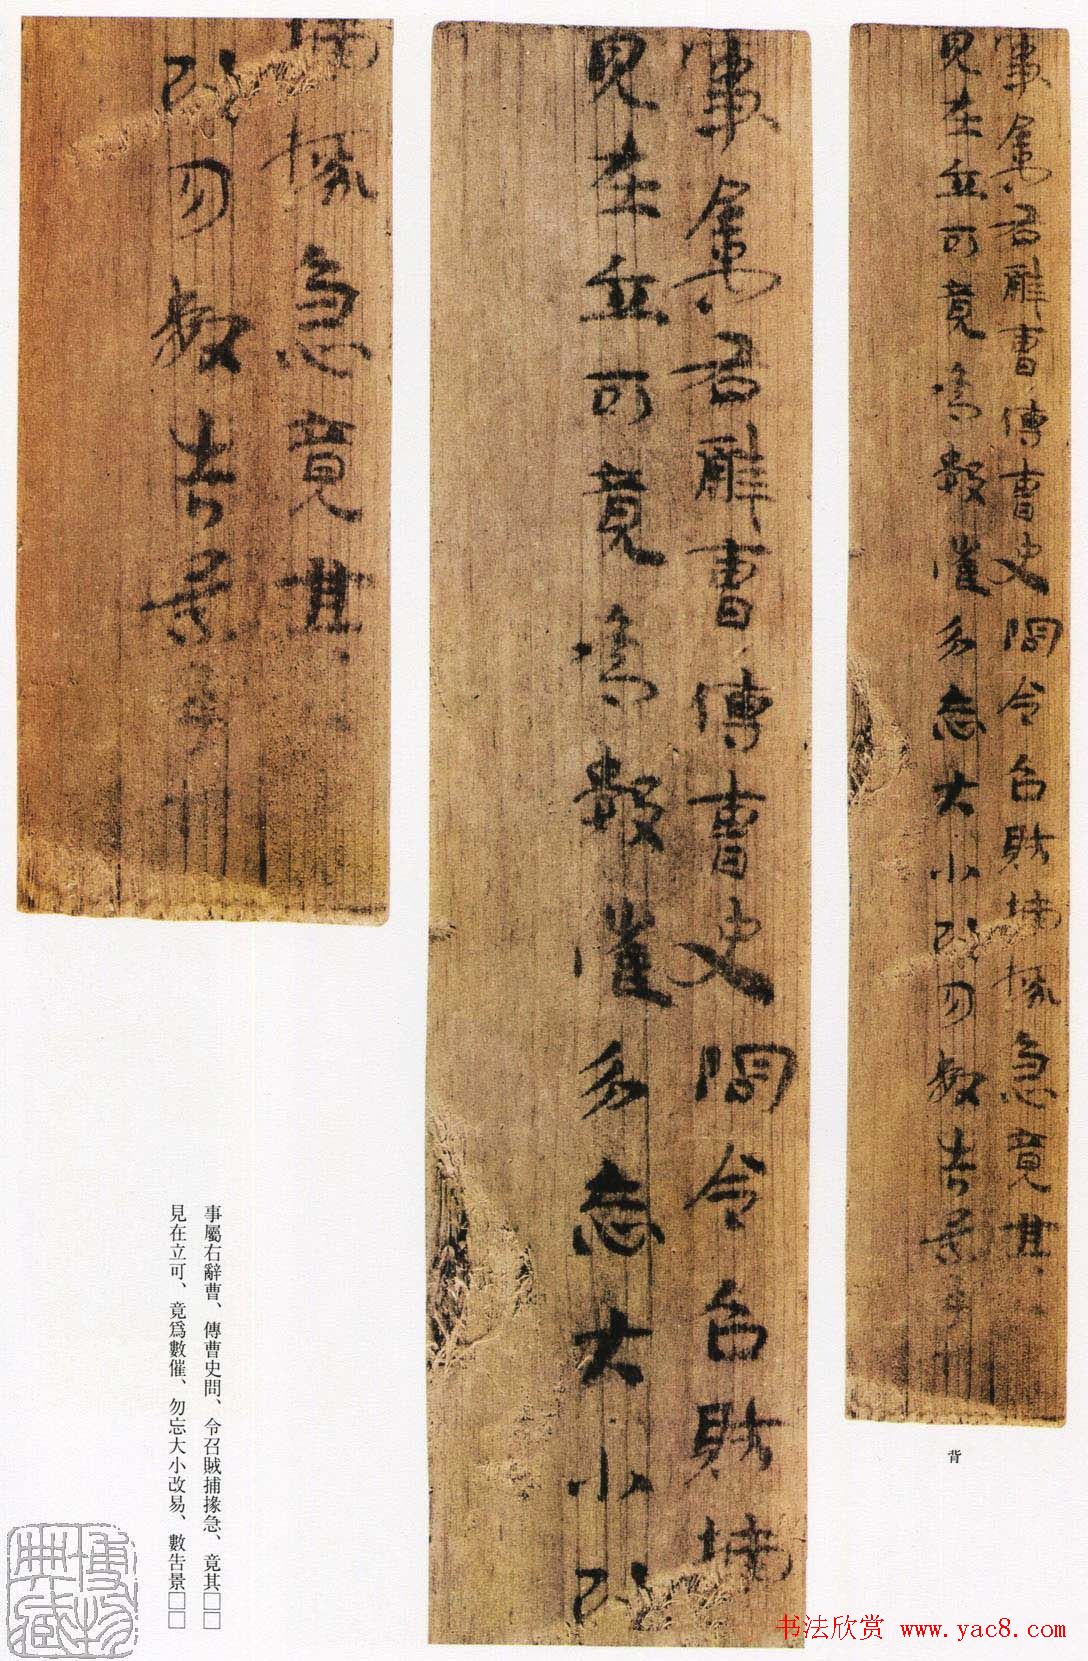 事屬右辭曹傳曹史問令召賊捕掾急竟其
見在立可竟爲數催勿忘大小改易數告景
背
事屬右辭曹傳曹史問令召賊捕
見在立可竟爲數催勿忘大小改
捕掾急竟其
改易數告景
事屬右辭曹、傳曹史問、令召賊捕掾急、竟其□□
見在立可、竟爲數催、勿忘大小改易、數告景□□
博物典藏
书法欣赏 www.yac8.com